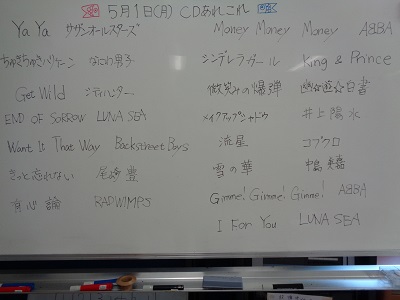 5月1日(月) CDあれこれ
Ya Ya サザンオールスターズ
ちゅきちゅきバリケーン なにわ男子
Get Wild シティハンター
END OF SORROW LUNA SEA
Want It That Way Backstreet Boys
きっと忘れない 尾崎豊
有心論 RADWIMPS
Money Money Money ABBA
シンデレラガール King & Prince
微笑みの爆弾 幽☆遊☆白書
メイクアップシャドウ 井上陽水
流星 コブクロ
雪の華 中島美嘉
Gimme! Gimme! Gimme! ABBA
I For You LUNA SEA